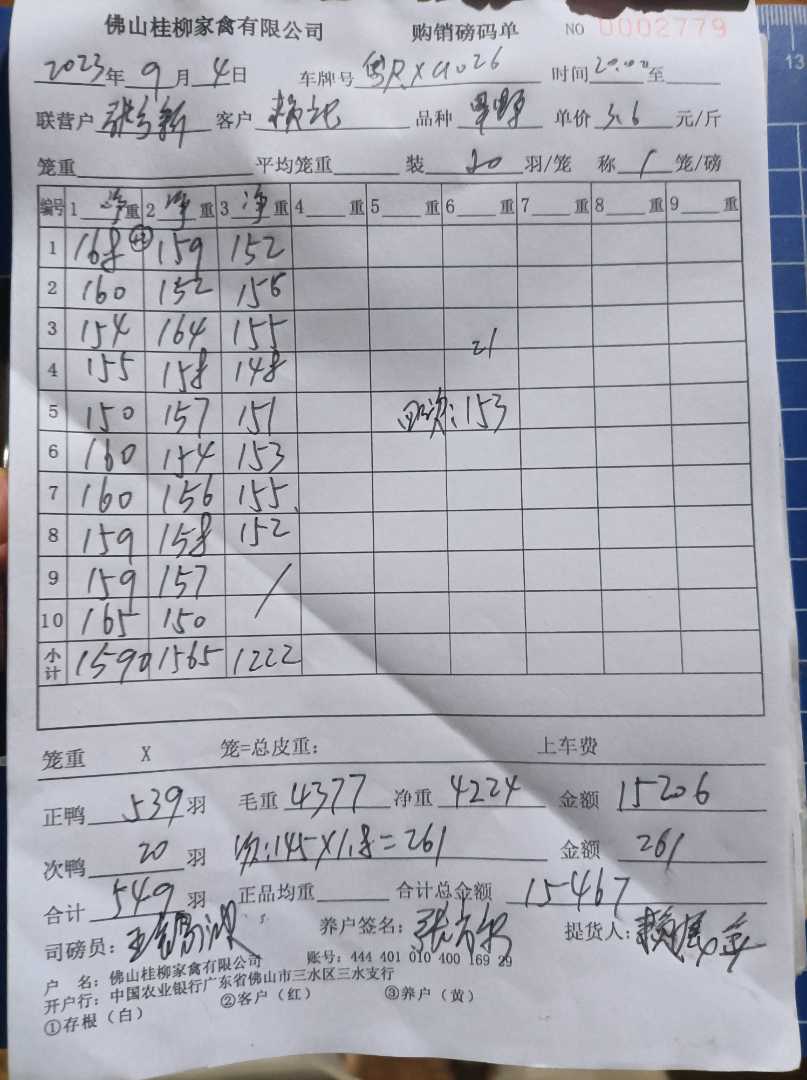 佛山桂柳家禽有限公司 购销磅码单 NO 0002779
2023年 9月 4日 车牌号 时间 20:00 至
联营户 客户 品种 单价 3.6 元/斤
笼重 平均笼重 装 20 羽/笼 称 1 笼/磅
编号 1 净 重 2 净 重 3 净 重 4 重 5 重 6 重 7 重 8 重 9 重
1 168 159 152
2 160 152 156
3 154 164 155
21
4 155 158 148
5 150 157 151 次:153
6 160 154 153
7 160 156 155
8 159 158 152
9 159 157 /
10 165 150
小计 1590 1565 1222
笼重 X 笼=总皮重: 上车费
正鸭 539 羽 毛重 4377 净重 4224 金额 15206
次鸭 20 羽 次:145×1.8=261 金额 261
合计 549 羽 正品均重 合计总金额 15467
司磅员: 养户签名: 提货人:
户 名:佛山桂柳家禽有限公司 账号:444 401 010 400 169 29
开户行:中国农业银行广东省佛山市三水区三水支行
①存根(白) ②客户(红) ③养户(黄)
13